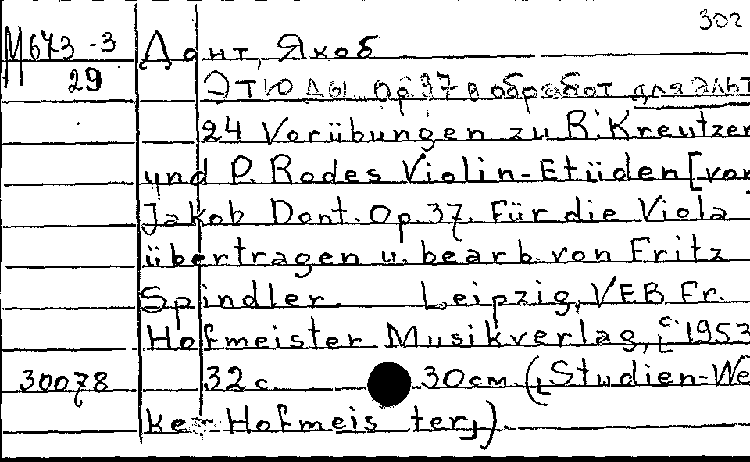 302
М673-3 Донт, Якоб
29 Этюды ор 37 в обработ для альт
24 Vorübungen zu R. Kreutzer
und P. Rodes Violin-Etüden [von
Jakob Dont. Op. 37. Für die Viola
übertragen u. bearb. von Fritz
Spindler. Leipzig, VEB Fr.
Hofmeister Musikverlag, [c. 1953
30078 32 с. 30 см ([Studien-We
ke- Hofmeis ter])